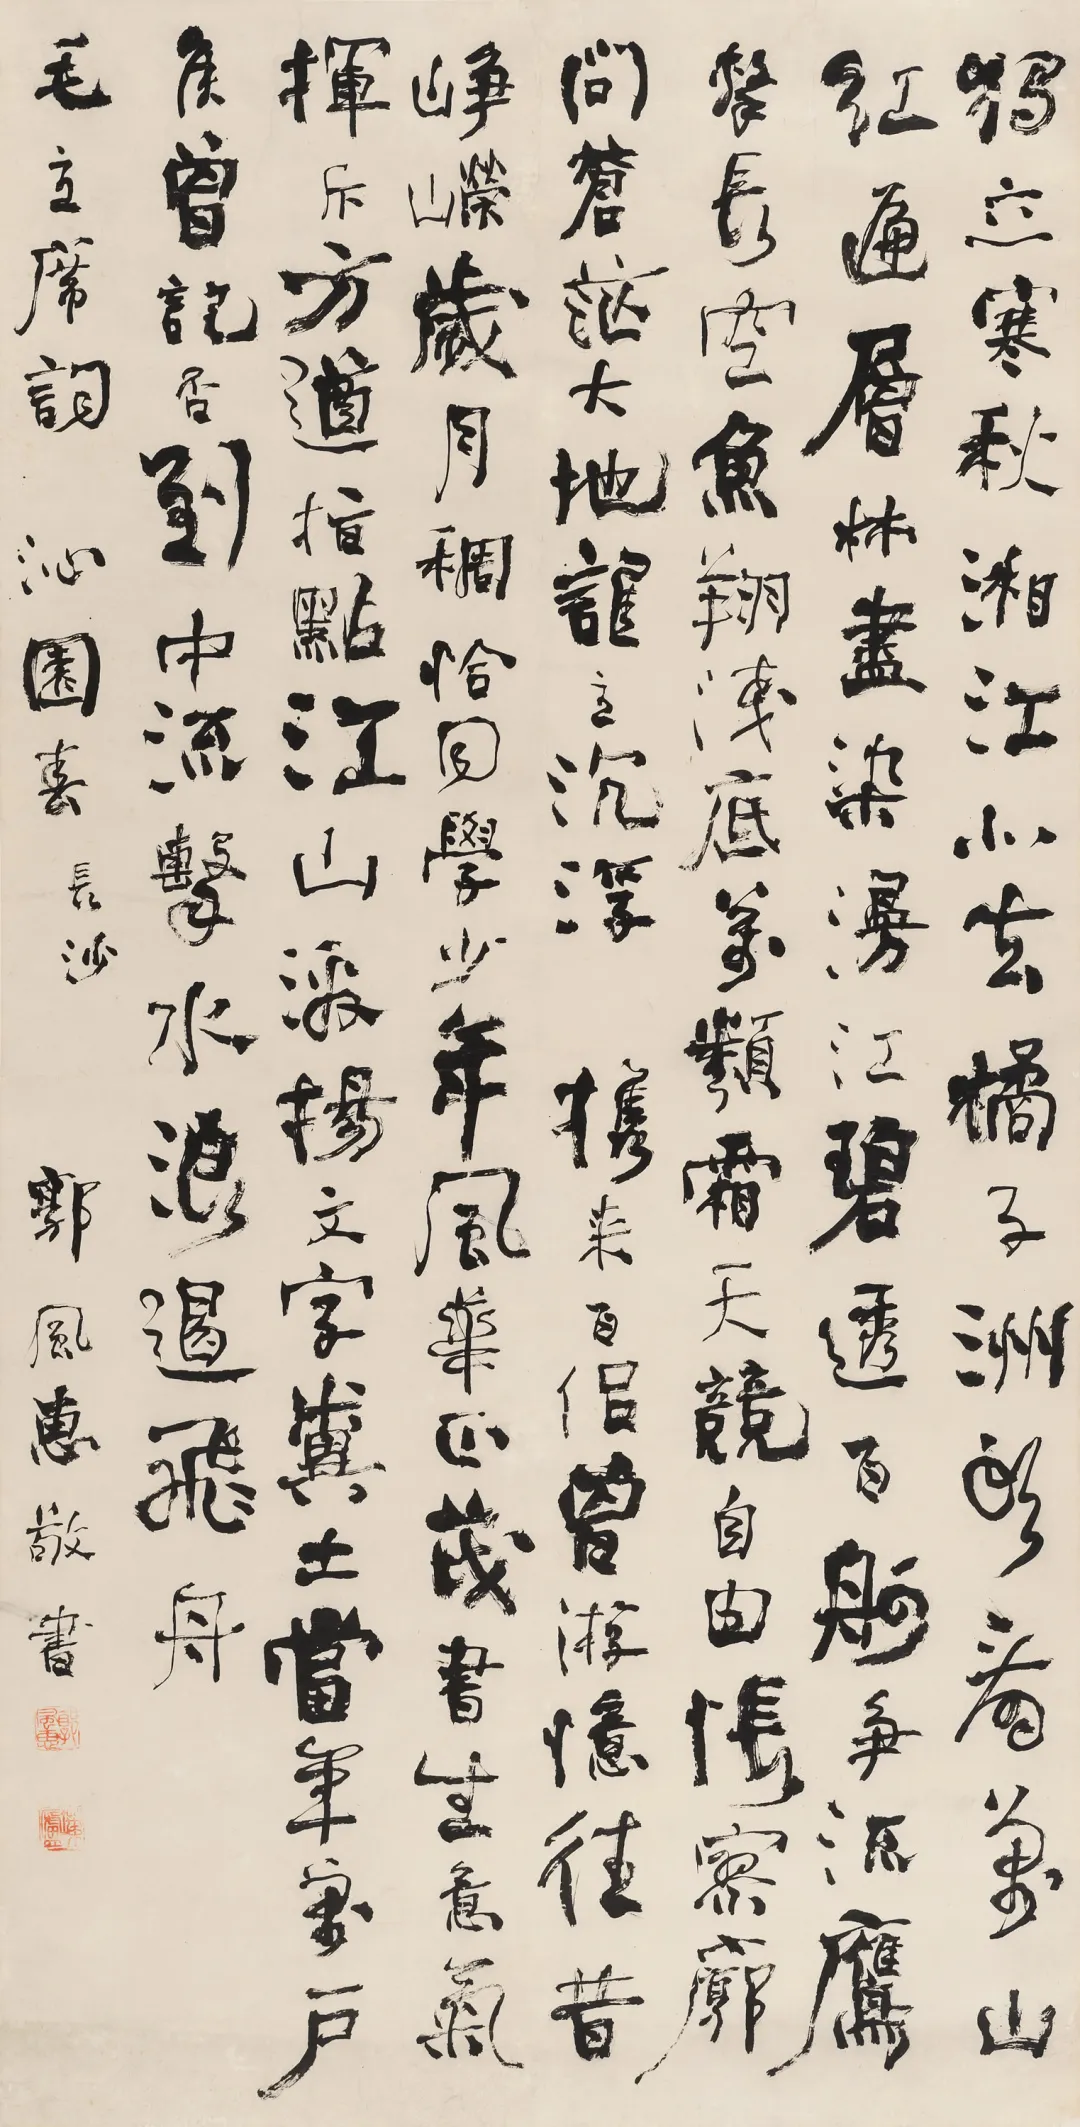 獨立寒秋湘江北去橘子洲頭看萬山
紅遍層林盡染漫江碧透百舸爭流鷹
擊長空魚翔淺底萬類霜天競自由悵寥廓
問蒼茫大地誰主沉浮 携来百侣曾游憶往昔
崢嶸歲月稠恰同學少年風華正茂書生意氣
揮斥方遒指點江山激揚文字糞土當年萬户
侯曾記否到中流擊水浪遏飛舟
毛主席詞 沁園春 長沙 郭風惠敬書
郭風惠